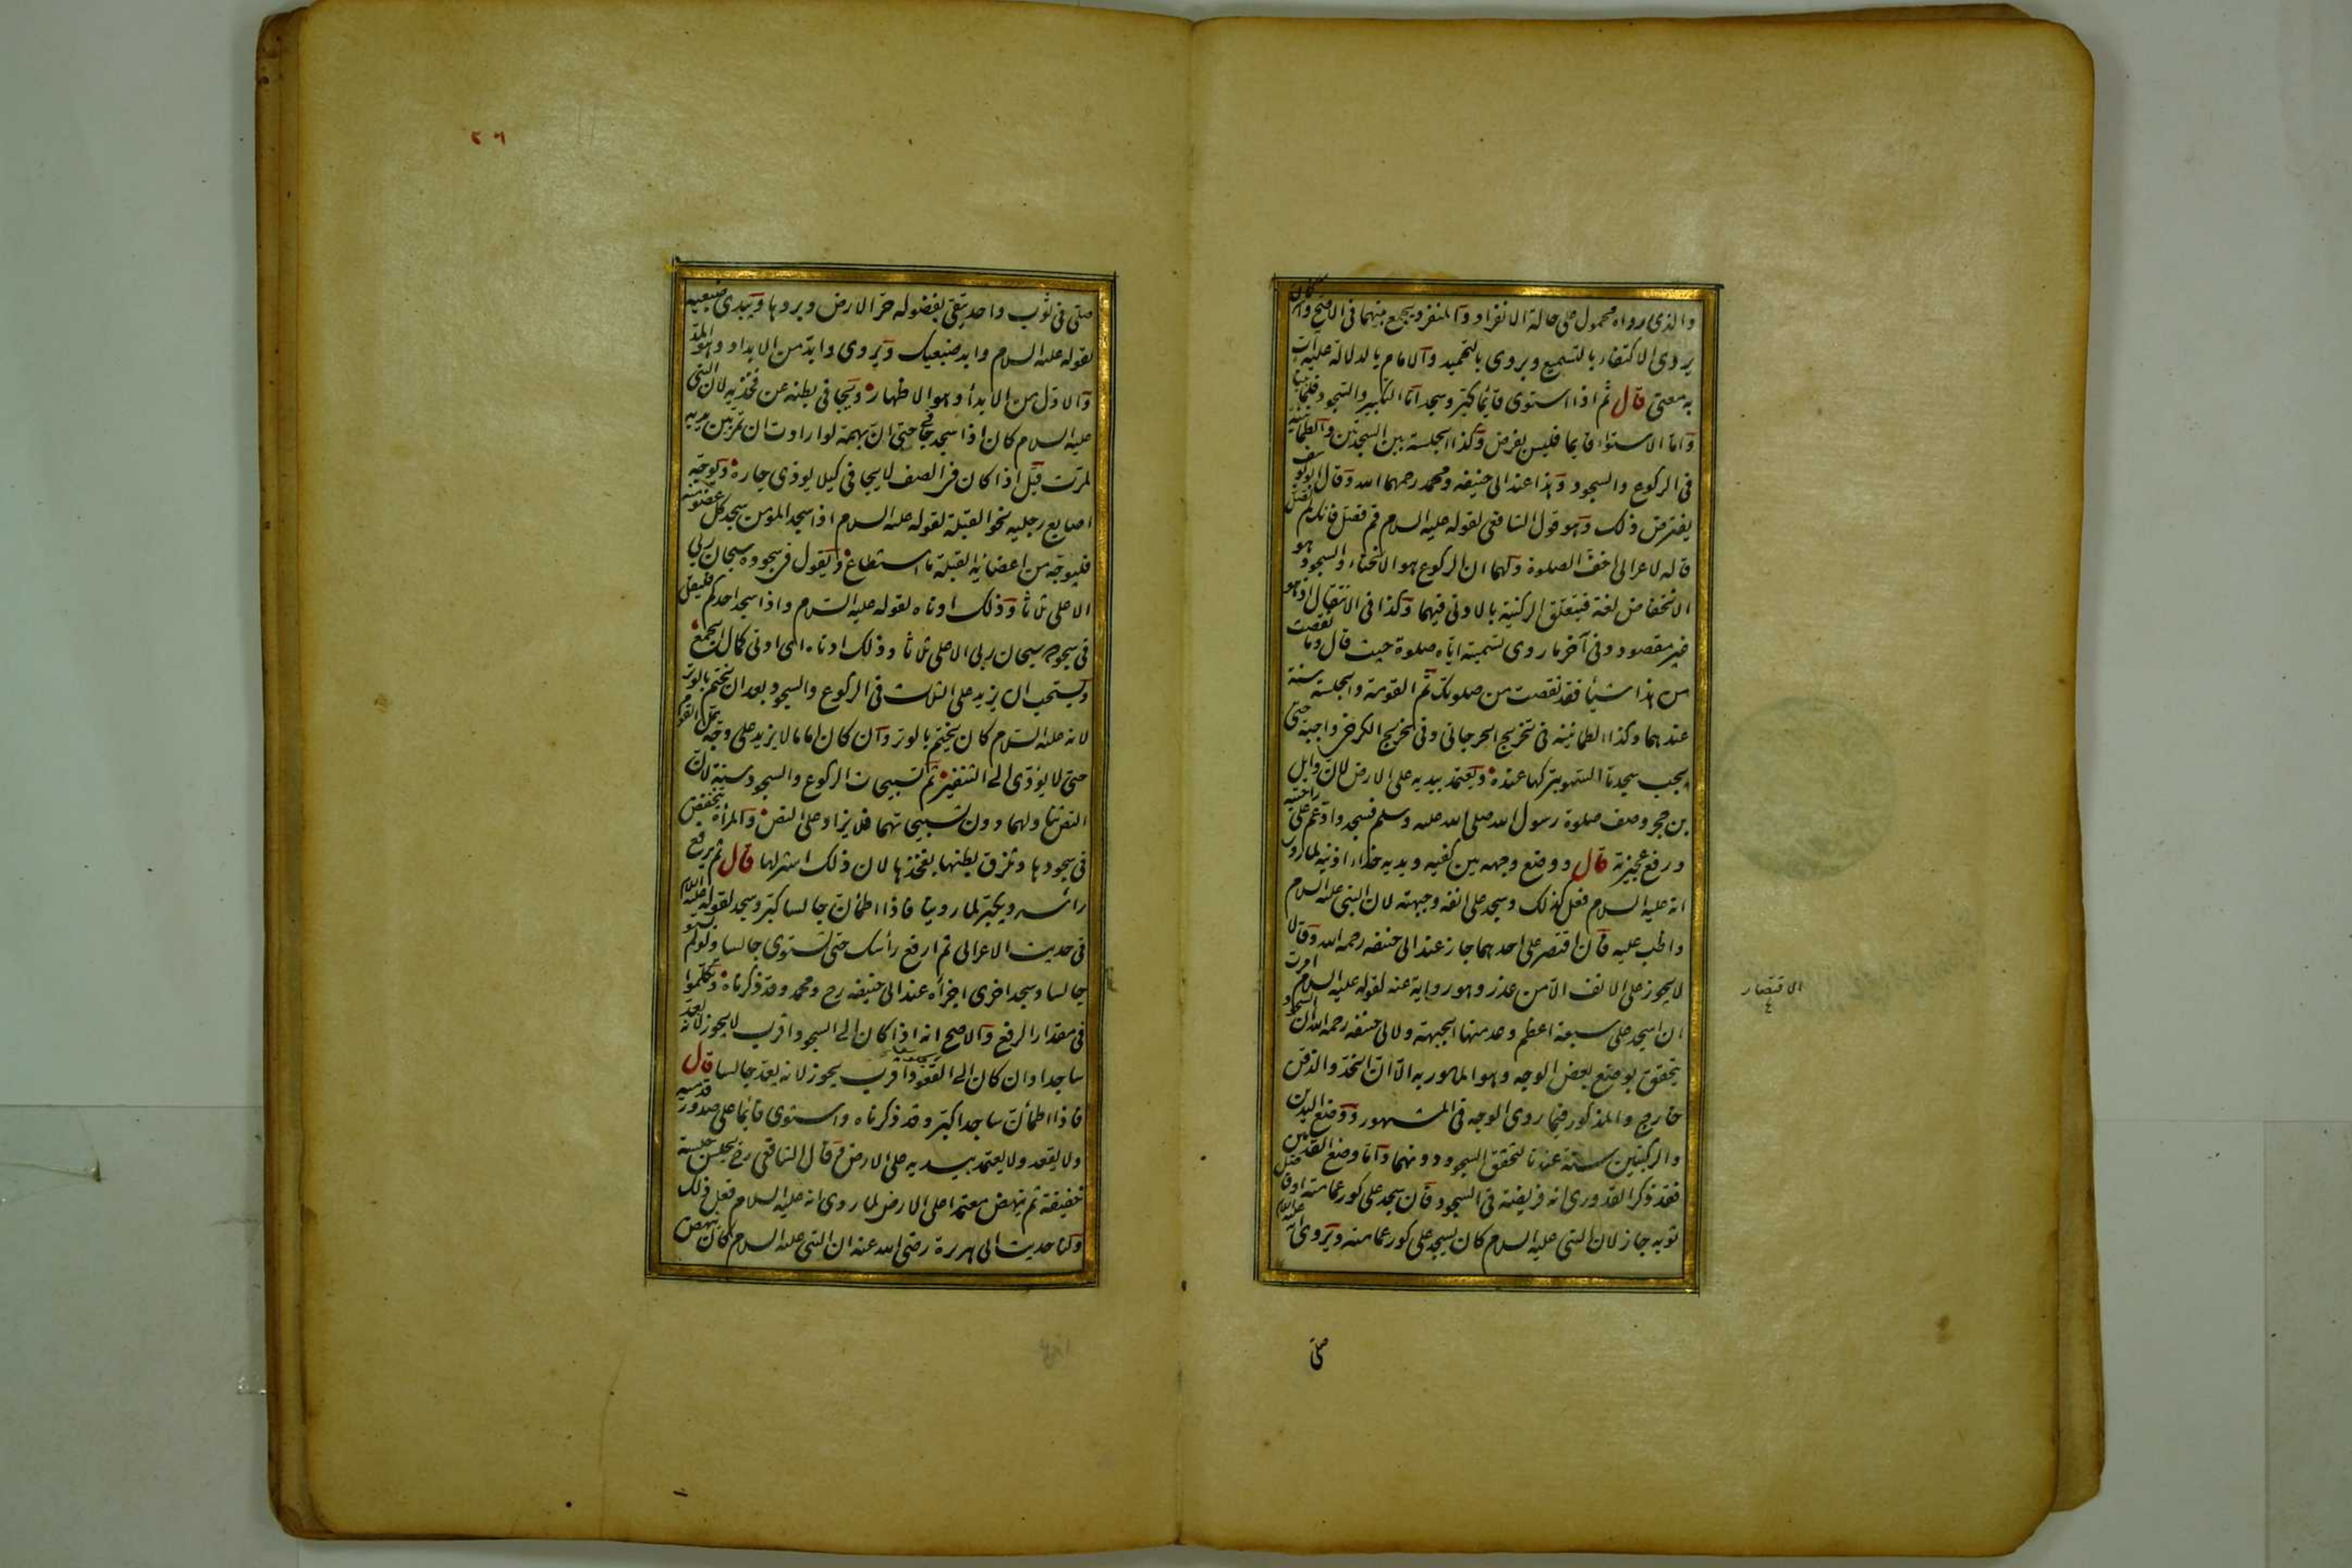 والذي رواه محمول على حالة الانفراد والمنفرد يجمع بينهما في الاصح وان كان
يروى الاكتفاء بالتسميع ويروى بالتحميد والامام بالدلالة عليه آت
به معنى قال ثم اذا استوى قائما كبر وسجد اما التكبير والسجود فلما بينا
واما الاستواء قايما فليس بفرض وكذا الجلسة بين السجدتين والطمانينة
في الركوع والسجود وهذا عند ابى حنيفه ومحمد رحمهما الله وقال ابو يوسف
يفترض ذلك وهو قول الشافعى لقوله عليه السلام قم فصل فانك لم تصل
قاله لاعرابى اخف الصلوة ولهما ان الركوع هو الانحناء والسجود هو
الانخفاض لغة فيتعلق الركنية بالادنى فيهما وكذا في الانتقال اذ هو
غير مقصود وفى آخر ما روى تسميته اياه صلوة حيث قال وما نقصت
من هذا شيأ فقد نقصت من صلوتك ثم القومة والجلسة سنة
عندهما وكذا الطمانينه في تخريج الجرجانى وفى تخريج الكرخى واجبة حتى
يجب سجدتا السهو بتركها عنده ويعتمد بيديه على الارض لان وايل
بن حجر وصف صلوة رسول الله صلى الله عليه وسلم فسجد وادعم على راحتيه
ورفع عجيزته قال ووضع وجهه بين كفيه ويديه حذاء اذنيه لما روى
انه عليه السلام فعل كذلك وسجد على انفه وجبهته لان النبى عليه السلام
واظب عليه فان اقتصر على احدهما جاز عند ابى حنيفه رحمه الله وقالا
لايجوز على الانف الا من عذر وهو رواية عنه لقوله عليه السلام امرت
ان اسجد على سبعة اعظم وعد منها الجبهة ولابى حنيفه رحمه الله ان السجود
يتحقق بوضع بعض الوجه وهو المامور به الا ان الخد والذقن
خارج والمذكور فيما روى الوجه في المشهور ووضع اليدين
والركبتين سنة عندنا لتحقق السجود دونهما واما وضع القدمين
فقد ذكر القدورى انه فريضة في السجود فان سجد على كور عمامته او فاضل
ثوبه جاز لان النبى عليه السلام كان يسجد على كور عمامته ويروى انه عليه السلام
الاقتصار
٤
صلى
٢٦
صلى في ثوب واحد يتقى بفضوله حر الارض وبردها ويبدى ضبعيه
لقوله عليه السلام وابد ضبعيك ويروى وابد من الابداد وهو المد
والاول من الابداء وهو الاظهار ويجافى بطنه عن فخذيه لان النبى
عليه السلام كان اذا سجد جافى حتى ان بهمة لو ارادت ان تمر بين يديه
لمرت قيل اذا كان فى الصف لايجافى كيلا يوذى جاره ويوجه
اصابع رجليه نحو القبلة لقوله عليه السلام اذا سجد المؤمن سجد كل عضو منه
فليوجه من اعضائه القبلة ما استطاع ويقول فى سجوده سبحان ربى
الاعلى ثلاثا وذلك ادناه لقوله عليه السلام واذا سجد احدكم فليقل
فى سجوده سبحان ربى الاعلى ثلاثا وذلك ادناه اى ادنى كمال الجمع
ويستحب ان يزيد على الثلاث في الركوع والسجود بعد ان يختم بالوتر
لانه عليه السلام كان يختم بالوتر وان كان اماما لا يزيد على وجه يمل القوم
حتى لا يؤدى الى التنفير ثم تسبيحات الركوع والسجود سنة لان
النص تناولهما دون تسبيحاتهما فلا يزاد على النص والمرأة تنخفض
فى سجودها وتلزق بطنها بفخذها لان ذلك استر لها قال ثم يرفع
رأسه ويكبر لما روينا فاذا اطمأن جالسا كبر وسجد لقوله عليه السلام
فى حديث الاعرابى ثم ارفع رأسك حتى تستوى جالسا ولو لم يستو
جالسا وسجد اخرى اجزأه عند ابى حنيفه رح ومحمد وقد ذكرناه وتكلموا
فى مقدار الرفع والاصح انه اذا كان الى السجود اقرب لايجوز لانه يعد
ساجدا وان كان الى القعود اقرب يجوز لانه يعد جالسا قال
فاذا اطمأن ساجدا كبر وقد ذكرناه واستوى قائما على صدور قدميه
ولا يقعد ولا يعتمد بيديه على الارض وقال الشافعى رض يجلس جلسة
خفيفة ثم ينهض معتمدا على الارض لما روى انه عليه السلام فعل ذلك
ولنا حديث ابى هريرة رضى الله عنه ان النبى عليه السلام كان ينهض